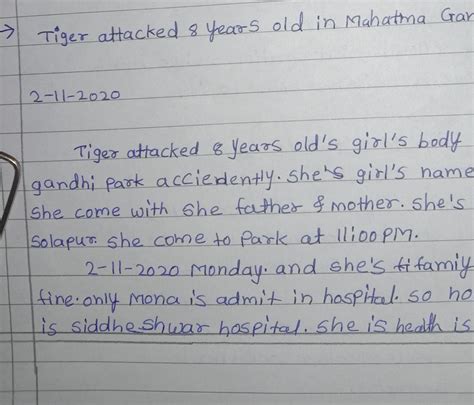 → Tiger attacked 8 years old in Mahatma Gar
2-11-2020
Tiger attacked 8 years old's girl's body
gandhi park acciedently. she's girl's name
she come with she father & mother. she's
solapur. she come to park at 11:00 PM.
2-11-2020 Monday. and she's family
fine. only Mona is admit in hospital. so ho
is siddheshwar hospital. she is health is